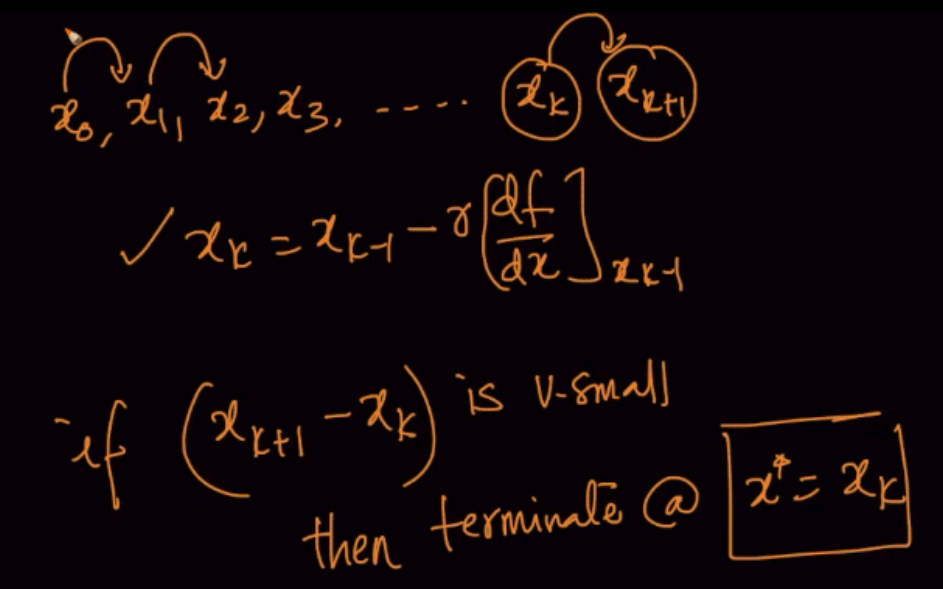 x₀, x₁, x₂, x₃, ..... x_k x_{k+1}
✓ x_k = x_{k-1} - r [df/dx]_{x_{k-1}}
if (x_{k+1} - x_k) is v-small
then terminate @ x* = x_k